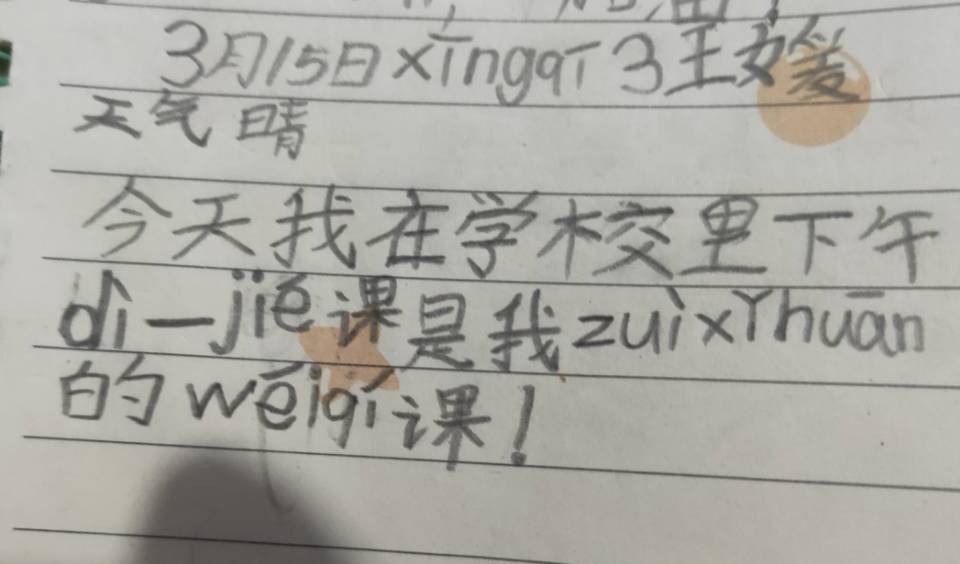 3月15日xīngqī3王媛
天气晴
今天我在学校里下午
dì一jié课是我zuìxǐhuān
的wéiqí课!